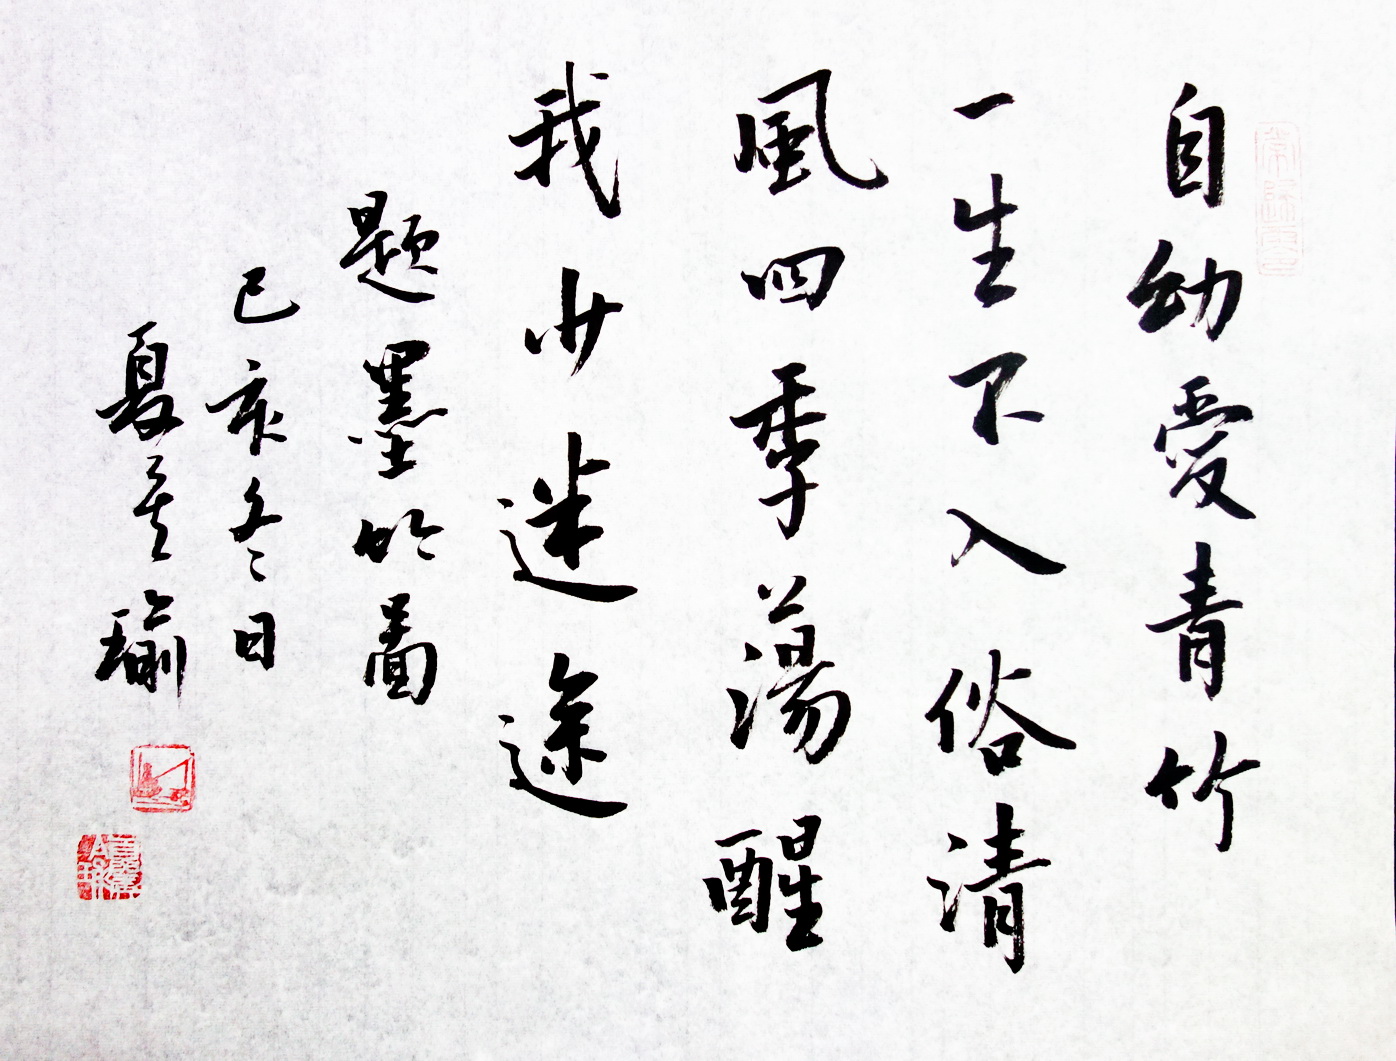 自幼愛青竹
一生不入俗清
風四季蕩醒
我少迷途
題墨竹圖
己亥冬日
夏瑜